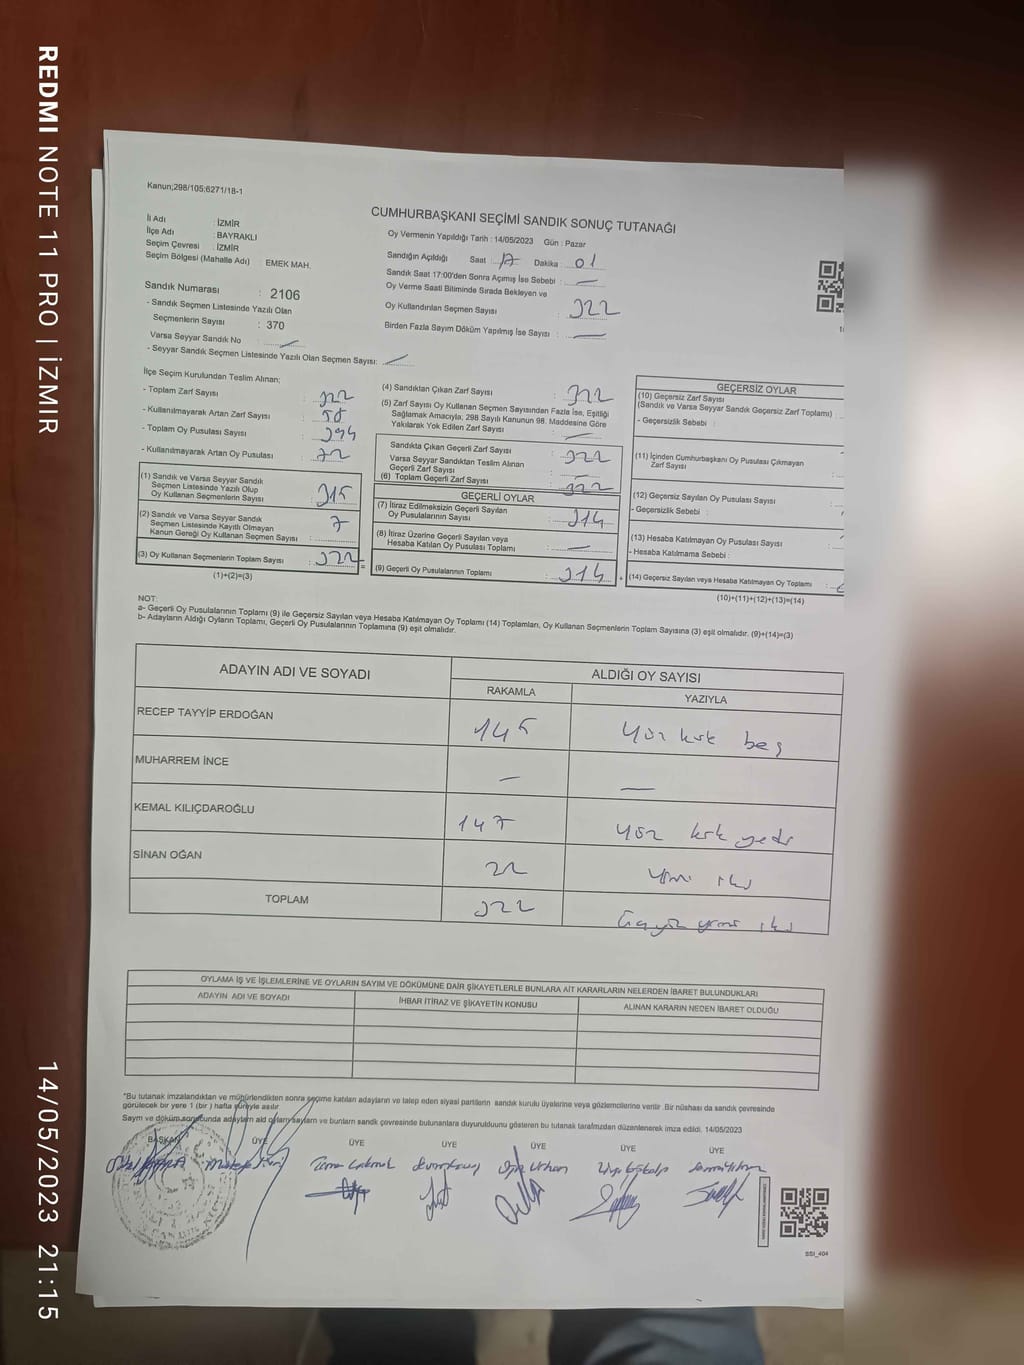 REDMI NOTE 11 PRO | İZMIR
14/05/2023 21:15
Kanun;298/105;6271/18-1
CUMHURBAŞKANI SEÇİMİ SANDIK SONUÇ TUTANAĞI
İl Adı : İZMİR
İlçe Adı : BAYRAKLI
Seçim Çevresi : İZMİR
Seçim Bölgesi (Mahalle Adı) : EMEK MAH.
Oy Vermenin Yapıldığı Tarih : 14/05/2023 Gün : Pazar
Sandığın Açıldığı Saat : 17 Dakika : 01
Sandık Saat 17:00'den Sonra Açımış İse Sebebi : —
Oy Verme Saati Bitiminde Sırada Bekleyen ve
Oy Kullandırılan Seçmen Sayısı : 322
Birden Fazla Sayım Döküm Yapılmış İse Sayısı : —
Sandık Numarası : 2106
- Sandık Seçmen Listesinde Yazılı Olan
Seçmenlerin Sayısı : 370
Varsa Seyyar Sandık No : —
- Seyyar Sandık Seçmen Listesinde Yazılı Olan Seçmen Sayısı: —
İlçe Seçim Kurulundan Teslim Alınan;
- Toplam Zarf Sayısı :
- Kullanılmayarak Artan Zarf Sayısı : 58
- Toplam Oy Pusulası Sayısı : 394
- Kullanılmayarak Artan Oy Pusulası : 72
(1) Sandık ve Varsa Seyyar Sandık
Seçmen Listesinde Yazılı Olup
Oy Kullanan Seçmenlerin Sayısı : 315
(2) Sandık ve Varsa Seyyar Sandık
Seçmen Listesinde Kayıtlı Olmayan
Kanun Gereği Oy Kullanan Seçmen Sayısı : 7
(3) Oy Kullanan Seçmenlerin Toplam Sayısı : 322
(1)+(2)=(3)
(4) Sandıktan Çıkan Zarf Sayısı : 322
(5) Zarf Sayısı Oy Kullanan Seçmen Sayısından Fazla İse, Eşitliği
Sağlamak Amacıyla; 298 Sayılı Kanunun 98. Maddesine Göre
Yakılarak Yok Edilen Zarf Sayısı : —
Sandıkta Çıkan Geçerli Zarf Sayısı : 322
Varsa Seyyar Sandıktan Teslim Alınan
Geçerli Zarf Sayısı : —
(6) Toplam Geçerli Zarf Sayısı : 322
GEÇERLİ OYLAR
(7) İtiraz Edilmeksizin Geçerli Sayılan
Oy Pusulalarının Sayısı : 314
(8) İtiraz Üzerine Geçerli Sayılan veya
Hesaba Katılan Oy Pusulası Toplamı : —
(9) Geçerli Oy Pusulalarının Toplamı : 314
GEÇERSİZ OYLAR
(10) Geçersiz Zarf Sayısı
(Sandık ve Varsa Seyyar Sandık Geçersiz Zarf Toplamı) :
- Geçersizlik Sebebi :
(11) İçinden Cumhurbaşkanı Oy Pusulası Çıkmayan
Zarf Sayısı :
(12) Geçersiz Sayılan Oy Pusulası Sayısı
- Geçersizlik Sebebi :
(13) Hesaba Katılmayan Oy Pusulası Sayısı
- Hesaba Katılmama Sebebi :
(14) Geçersiz Sayılan veya Hesaba Katılmayan Oy Toplamı :
(10)+(11)+(12)+(13)=(14)
NOT:
a- Geçerli Oy Pusulalarının Toplamı (9) ile Geçersiz Sayılan veya Hesaba Katılmayan Oy Toplamı (14) Toplamları, Oy Kullanan Seçmenlerin Toplam Sayısına (3) eşit olmalıdır. (9)+(14)=(3)
b- Adayların Aldığı Oyların Toplamı, Geçerli Oy Pusulalarının Toplamına (9) eşit olmalıdır.
ADAYIN ADI VE SOYADI ALDIĞI OY SAYISI
RAKAMLA YAZIYLA
RECEP TAYYİP ERDOĞAN 145 Yüz kırk beş
MUHARREM İNCE — —
KEMAL KILIÇDAROĞLU 147 yüz kırk yedi
SİNAN OĞAN 22 yirmi iki
TOPLAM 322 Üçyüz yirmi iki
OYLAMA İŞ VE İŞLEMLERİNE VE OYLARIN SAYIM VE DÖKÜMÜNE DAİR ŞİKAYETLERLE BUNLARA AİT KARARLARIN NELERDEN İBARET BULUNDUKLARI
ADAYIN ADI VE SOYADI İHBAR İTİRAZ VE ŞİKAYETİN KONUSU ALINAN KARARIN NEDEN İBARET OLDUĞU
"Bu tutanak imzalandıktan ve mühürlendikten sonra seçime katılan adayların ve talep eden siyasi partilerin sandık kurulu üyelerine veya gözlemcilerine verilir. Bir nüshası da sandık çevresinde
görülecek bir yere 1 (bir) hafta süreyle asılır.
Sayım ve döküm sonucunda adayların aldığı oyların sayıları ve bunların sandık çevresinde bulunanlara duyurulduğunu gösteren bu tutanak tarafımızdan düzenlenerek imza edildi. 14/05/2023
BAŞKAN ÜYE ÜYE ÜYE ÜYE ÜYE ÜYE
SSI_404